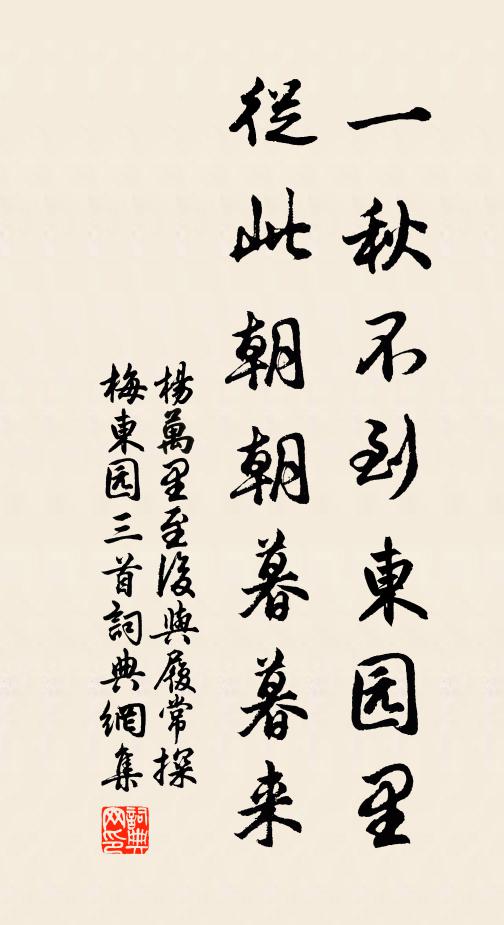 一秋不到東园里
從此朝朝暮暮来
楊萬里至後與履常探
梅東园三首詞典網集
詞典
网印